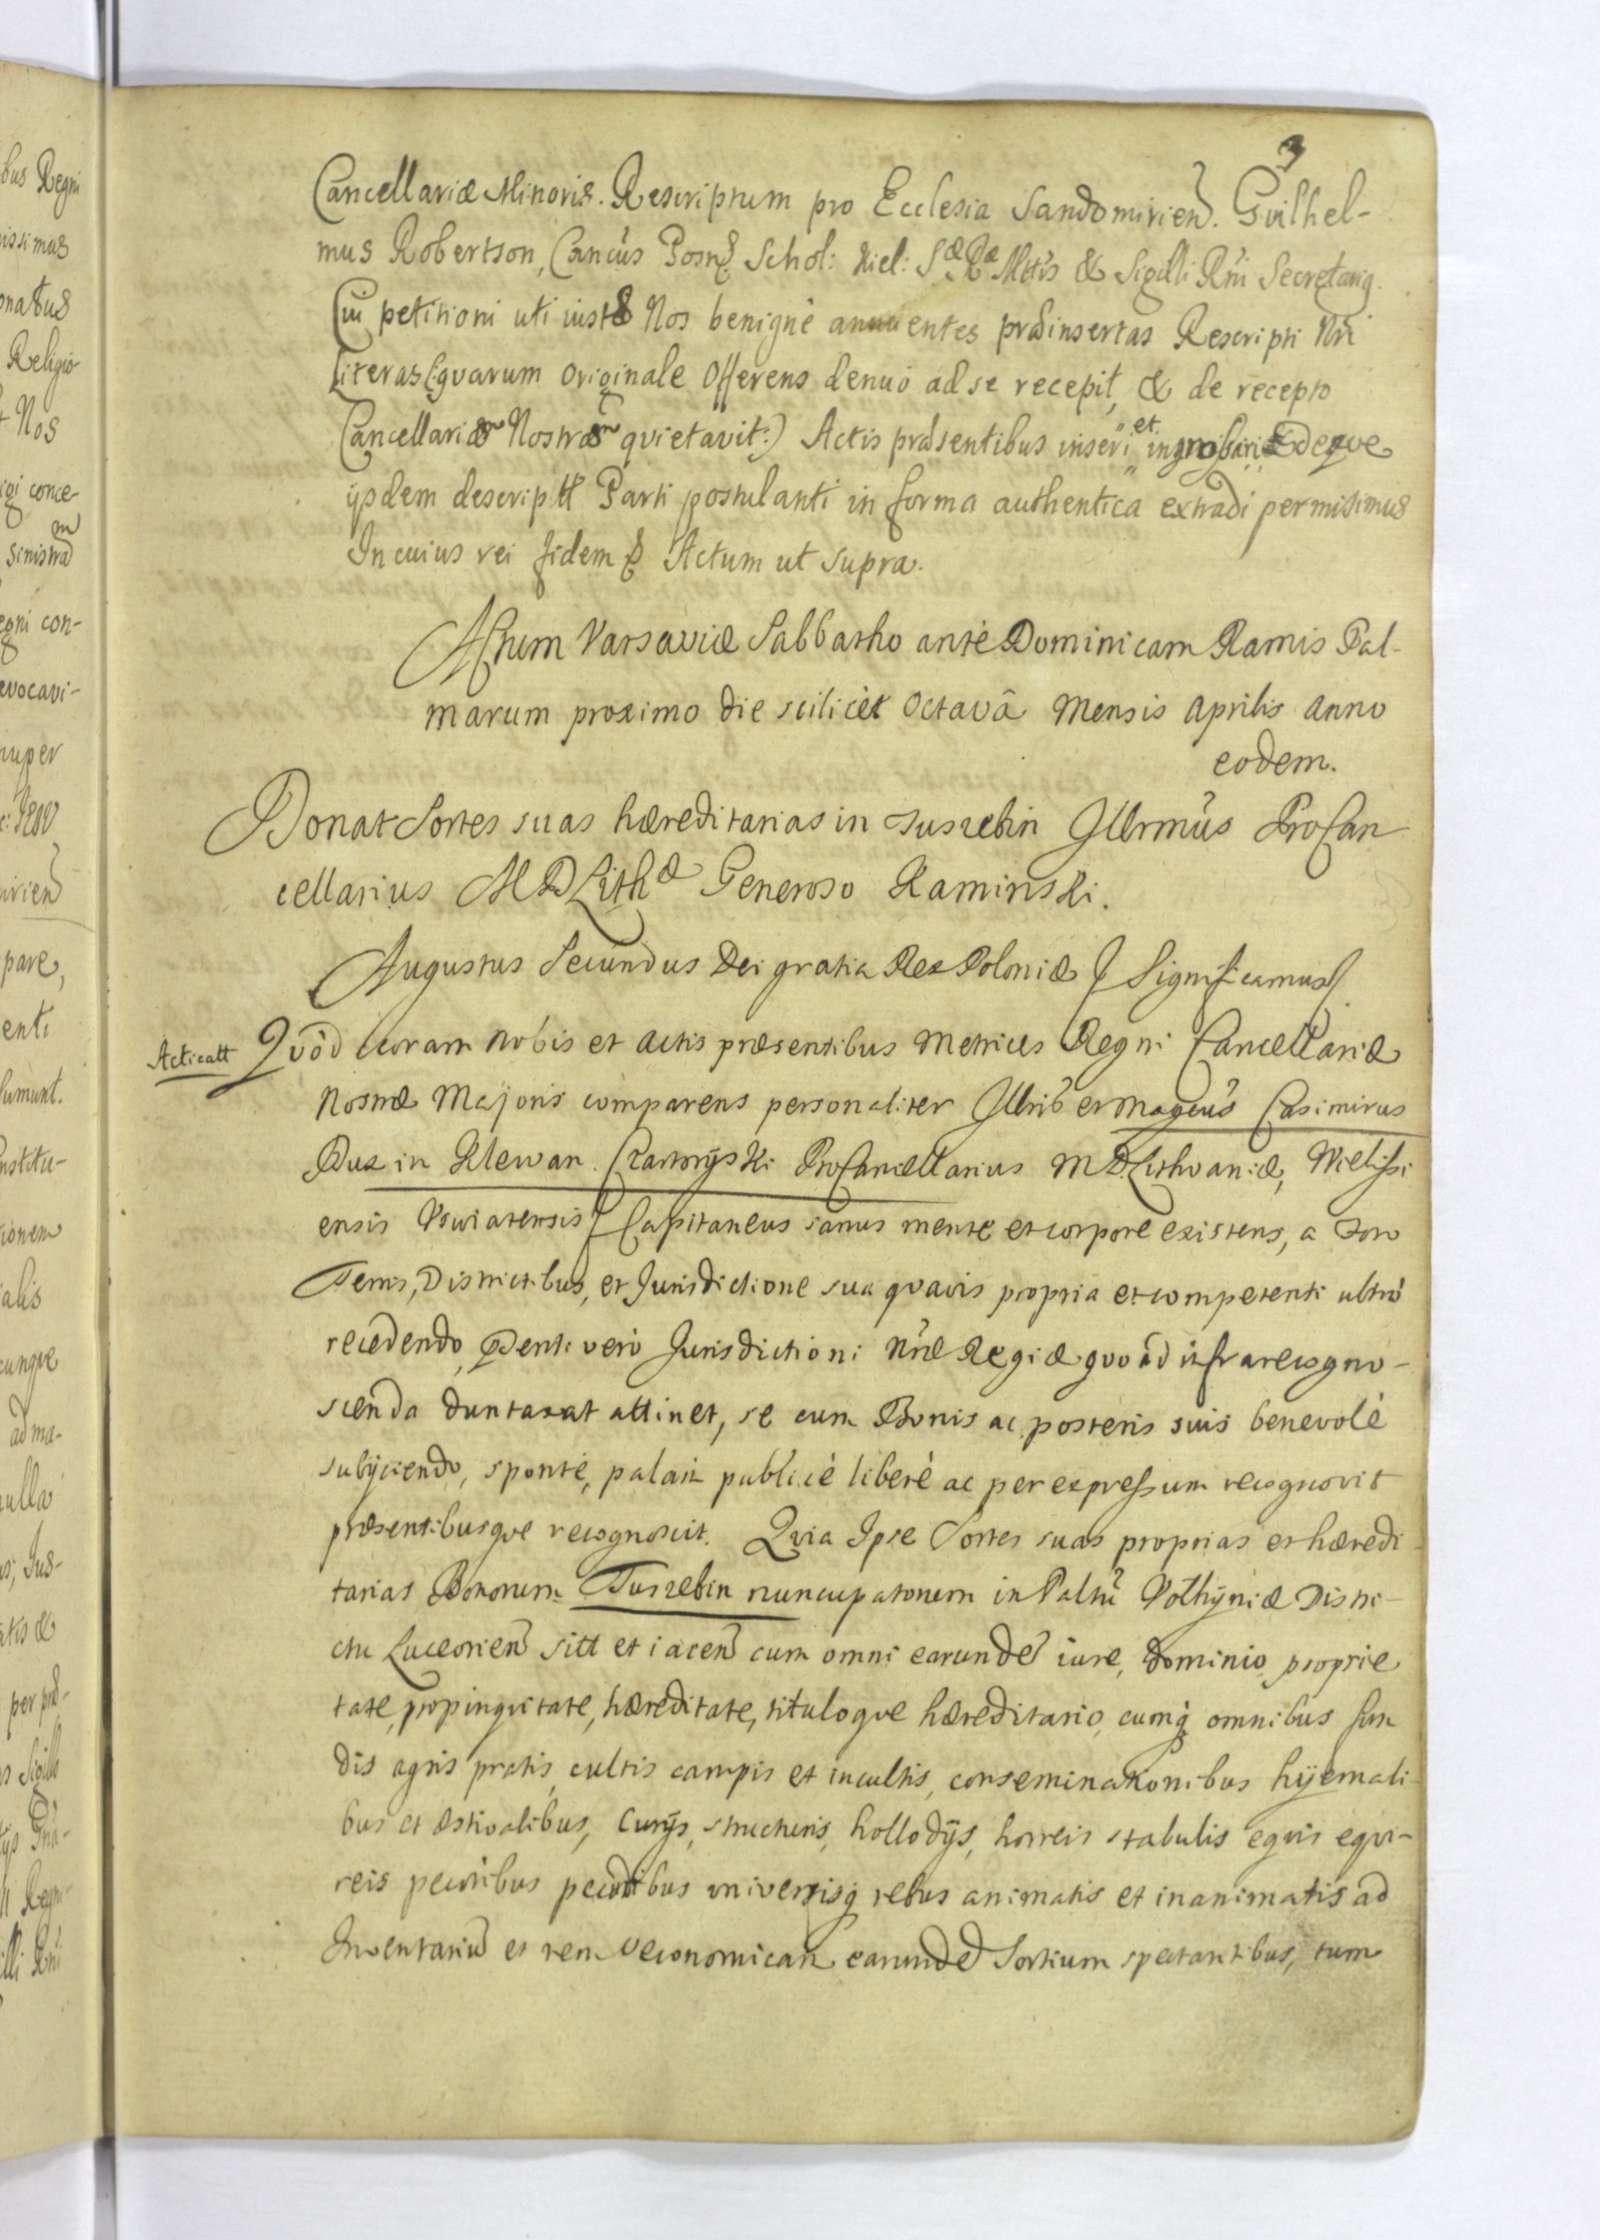 3
Cancellariæ Minoris. Rescriptum pro Ecclesia Sandomirien. Gvilhel-
mus Robertson, Cancus Posn: Schol: Kiel: S Ræ Mttis & Sigilli Rni Secretarig.
Cui petitioni uti iustæ Nos benignè annuentes præinsertas Rescripti Nri
Literas (qvarum Originale Offerens denuò ad se recepit, & de recepto
Cancellariam Nostram qvietavit:) Actis præsentibus inseri et ingrossari Edeqve
ijsdem descriptt Parti postulanti in forma authentica extradi permisimus
In cuius rei fidem & Actum ut supra.
Actum Varsaviæ Sabbatho ante Dominicam Ramis Pal-
marum proximo die scilicèt Octavâ Mensis Aprilis Anno
eodem.
Donat Sortes suas hæreditarias in Tuszebin Illrmus ProCan
cellarius M D Lithæ Generoso Kaminski.
Augustus Secundus Dei gratia Rex Poloniæ & Significamus &.
Acticatt Qvôd coram nobis et actis præsentibus Metrices Regni Cancellariæ
Nostræ Majoris comparens personaliter Illris et Magcus Casimirus
Dux in Klewan Czartoryski ProCancellarius M D Lithvaniæ, Wielissi
ensis Vswiatensis & Capitaneus sanus mente et corpore existens, a Foro
Terris, Districtibus, et Jurisdictione sua qvavis propria et competenti ultrò
recedendo, Pdenti verò Jurisdictioni Nræ Regiæ qvoàd infrarecogno-
scenda duntaxat attinet, se cum Bonis ac posteris suis benevolè
subijciendo, spontè, palam publicè liberè ac per expressum recognovit
præsentibusqve recognoscit. Qvia Ipse Sortes suas proprias et hæredi-
tarias Bonorum Tuszebin nuncupatorum in Paltu Volhyniæ Distri-
ctu Luceorien sitt et iacen cum omni earunde iure, dominio proprie
tate, propinqvitate, hæreditate, tituloqve hæreditario, cumq omnibus fun
dis agris pratis, cultis campis et incultis, conseminationibus hyemali-
bus et æstivalibus, Curijs, structuris, hollodijs, horreis stabulis eqvis eqvi-
reis pecoribus pecudibus universisq rebus animatis et inanimatis ad
Inventariu et rem Oeconomicam earunde Sortium spectantibus, tum